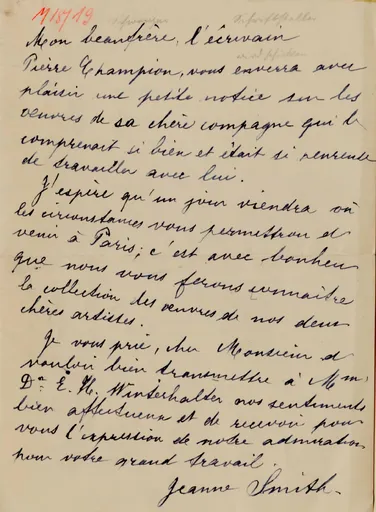 M 1579
Mon beaufrère, l'écrivain
Pierre Champion, vous enverra avec
plaisir une petite notice sur les
œuvres de sa chère compagne qui le
comprenait si bien et était si heureuse
de travailler avec lui.
J'espère qu'un jour viendra où
les circonstances vous permettront de
venir à Paris; c'est avec bonheur
que nous vous ferons connaître
la collection des œuvres de nos deux
chères artistes.
Je vous prie, cher Monsieur de
vouloir bien transmettre à Mme
E. H. Winterhalter nos sentiments
bien affectueux et de recevoir pour
vous l'expression de notre admiration
pour votre grand travail.
Jeanne Smith.